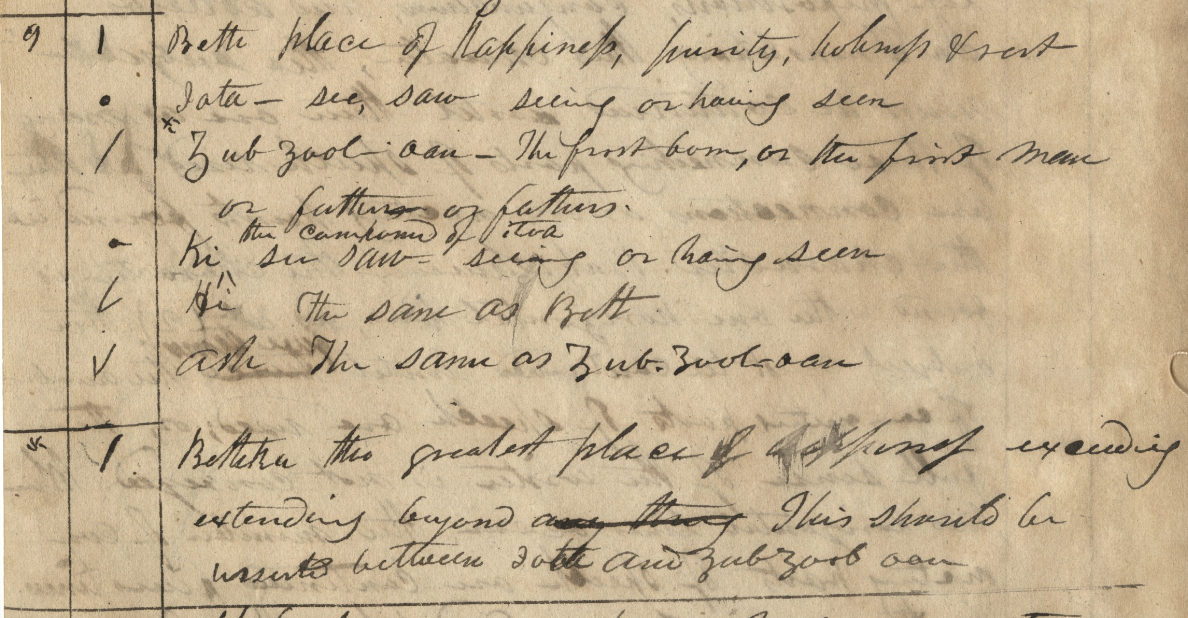 9 1 Beth place of happiness, purity, holiness & rest
Iota — see, saw seeing or having seen
Zub Zool-oan — The first born, or the first man
or fathers or fathers.
the compound of itoa
Ki see saw — seeing or having seen
Hi The same as Beth
ash The same as Zub-Zool-oan
1 Bethka the greatest place of happiness exceeding
extending beyond any thing This should be
inserted between Iota and Zub Zool oan